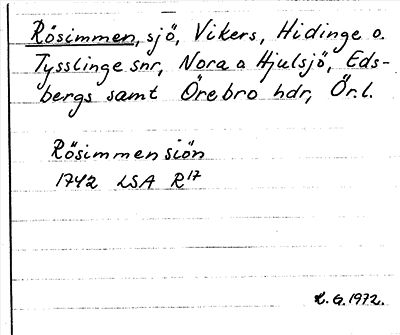 Rösimmen, sjö, Vikers, Hidinge o.
Tysslinge snr, Nora o Hjulsjö, Eds-
bergs samt Örebro hdr, Ör.l.
Rösimmen siön
1742 LSA R17
K.G.1972.